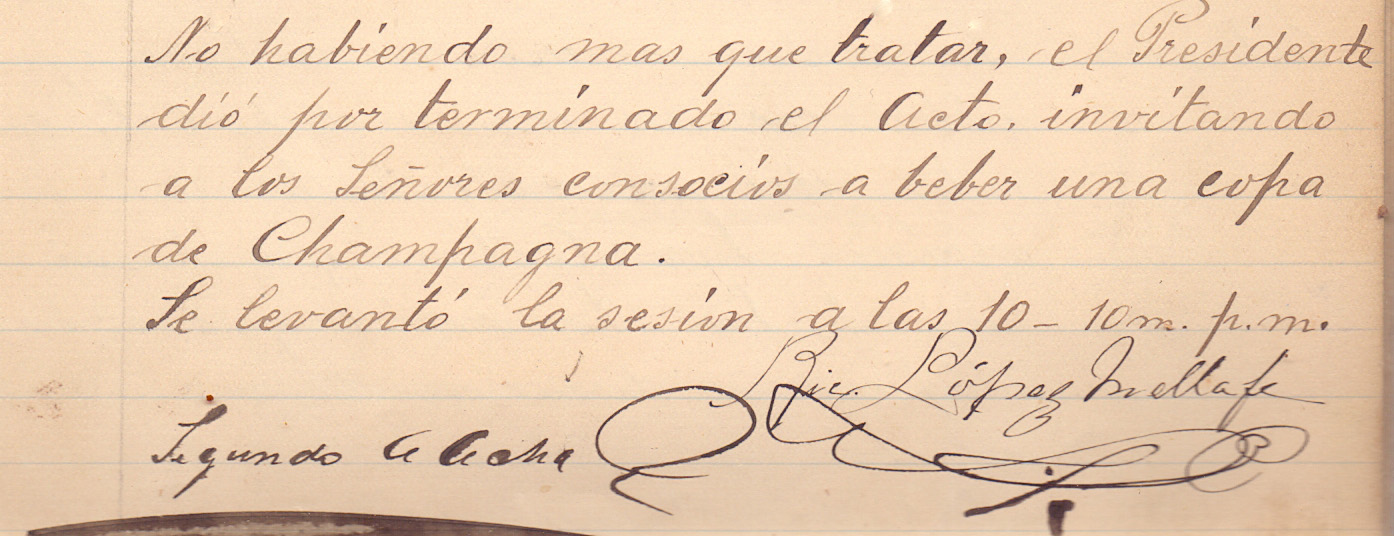 No habiendo mas que tratar, el Presidente
dió por terminado el Acto, invitando
a los Señores consocios a beber una copa
de Champagna.
Se levantó la sesión a las 10 - 10 m. p.m.
Ric. López Mellafe
Segundo A Acha